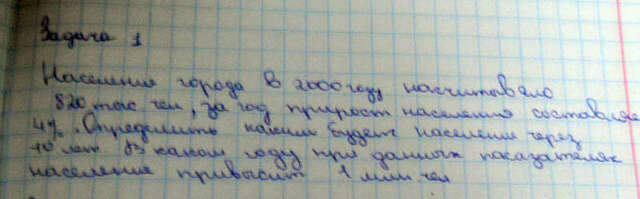 Задача 1
Население города в 2000 году насчитывало
820 тыс чел, за год прирост населения составляе
4%. Определить каким будет население через
10 лет. В каком году при данных показателях
население привысит 1 млн чел